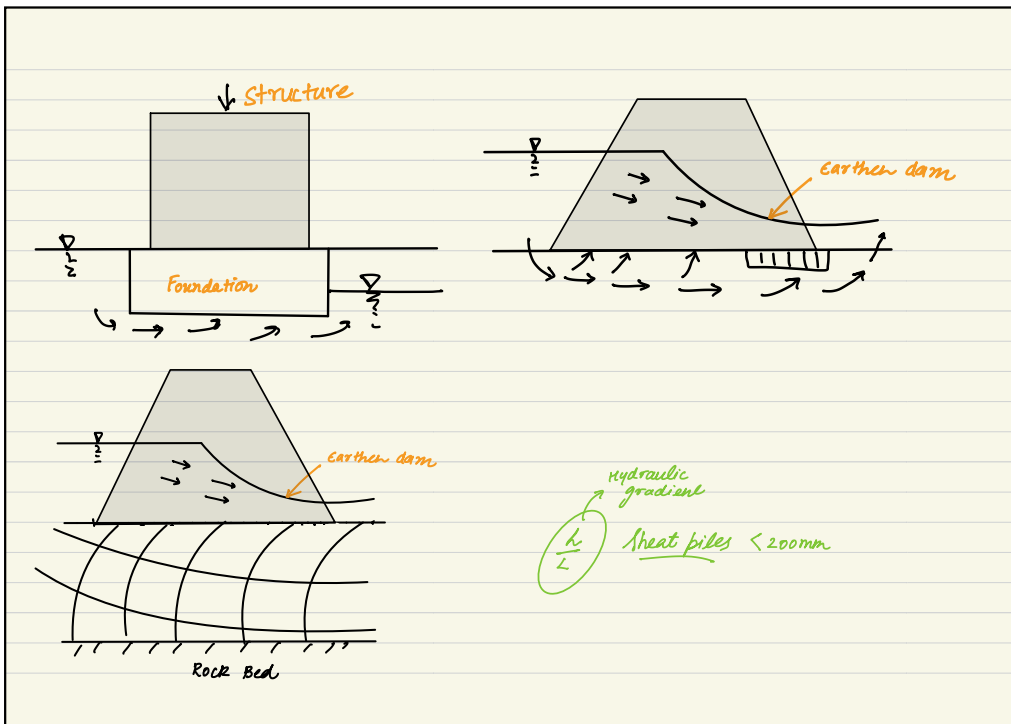 Structure
Foundation
Earthen dam
Earthen dam
Rock Bed
Hydraulic
gradient
h
L
Sheat piles < 200mm